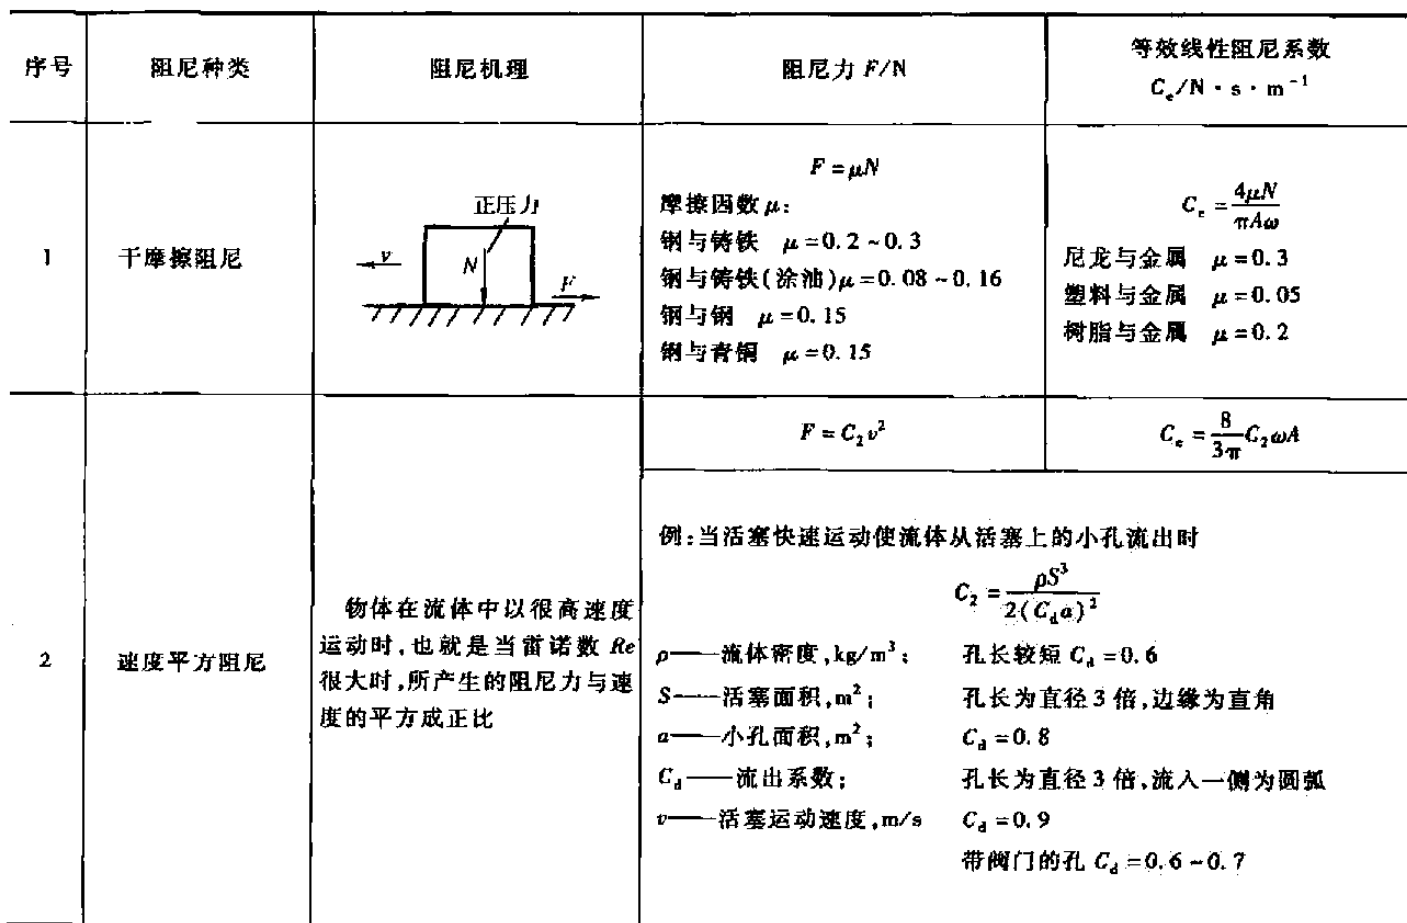 序号
阻尼种类
阻尼机理
阻尼力 F/N
等效线性阻尼系数
Cₑ/N·s·m⁻¹
1
干摩擦阻尼
正压力
v
N
F
F = μN
摩擦因数 μ：
钢与铸铁 μ = 0.2 ~ 0.3
钢与铸铁(涂油) μ = 0.08 ~ 0.16
钢与钢 μ = 0.15
钢与青铜 μ = 0.15
Cₑ = 4μN/πAω
尼龙与金属 μ = 0.3
塑料与金属 μ = 0.05
树脂与金属 μ = 0.2
2
速度平方阻尼
物体在流体中以很高速度
运动时,也就是当雷诺数 Re
很大时,所产生的阻尼力与速
度的平方成正比
F = C₂v²
Cₑ = 8/3π C₂ωA
例:当活塞快速运动使流体从活塞上的小孔流出时
C₂ = ρS³/2(C_d a)²
ρ——流体密度,kg/m³；
S——活塞面积,m²；
a——小孔面积,m²；
C_d——流出系数；
v——活塞运动速度,m/s
孔长较短 C_d = 0.6
孔长为直径 3 倍,边缘为直角
C_d = 0.8
孔长为直径 3 倍,流入一侧为圆弧
C_d = 0.9
带阀门的孔 C_d = 0.6 ~ 0.7